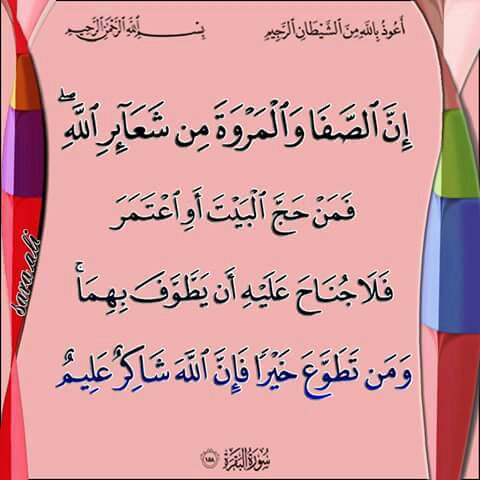 أَعُوذُ بِاللَّهِ مِنَ الشَّيْطَانِ الرَّجِيمِ بِسْمِ اللَّهِ الرَّحْمَٰنِ الرَّحِيمِ
إِنَّ ٱلصَّفَا وَٱلْمَرْوَةَ مِن شَعَآئِرِ ٱللَّهِ ۖ
فَمَنْ حَجَّ ٱلْبَيْتَ أَوِ ٱعْتَمَرَ
فَلَا جُنَاحَ عَلَيْهِ أَن يَطَّوَّفَ بِهِمَا ۚ
وَمَن تَطَوَّعَ خَيْرًا فَإِنَّ ٱللَّهَ شَاكِرٌ عَلِيمٌ
سُورَةُ البَقَرَةِ ١٥٨
sara ali